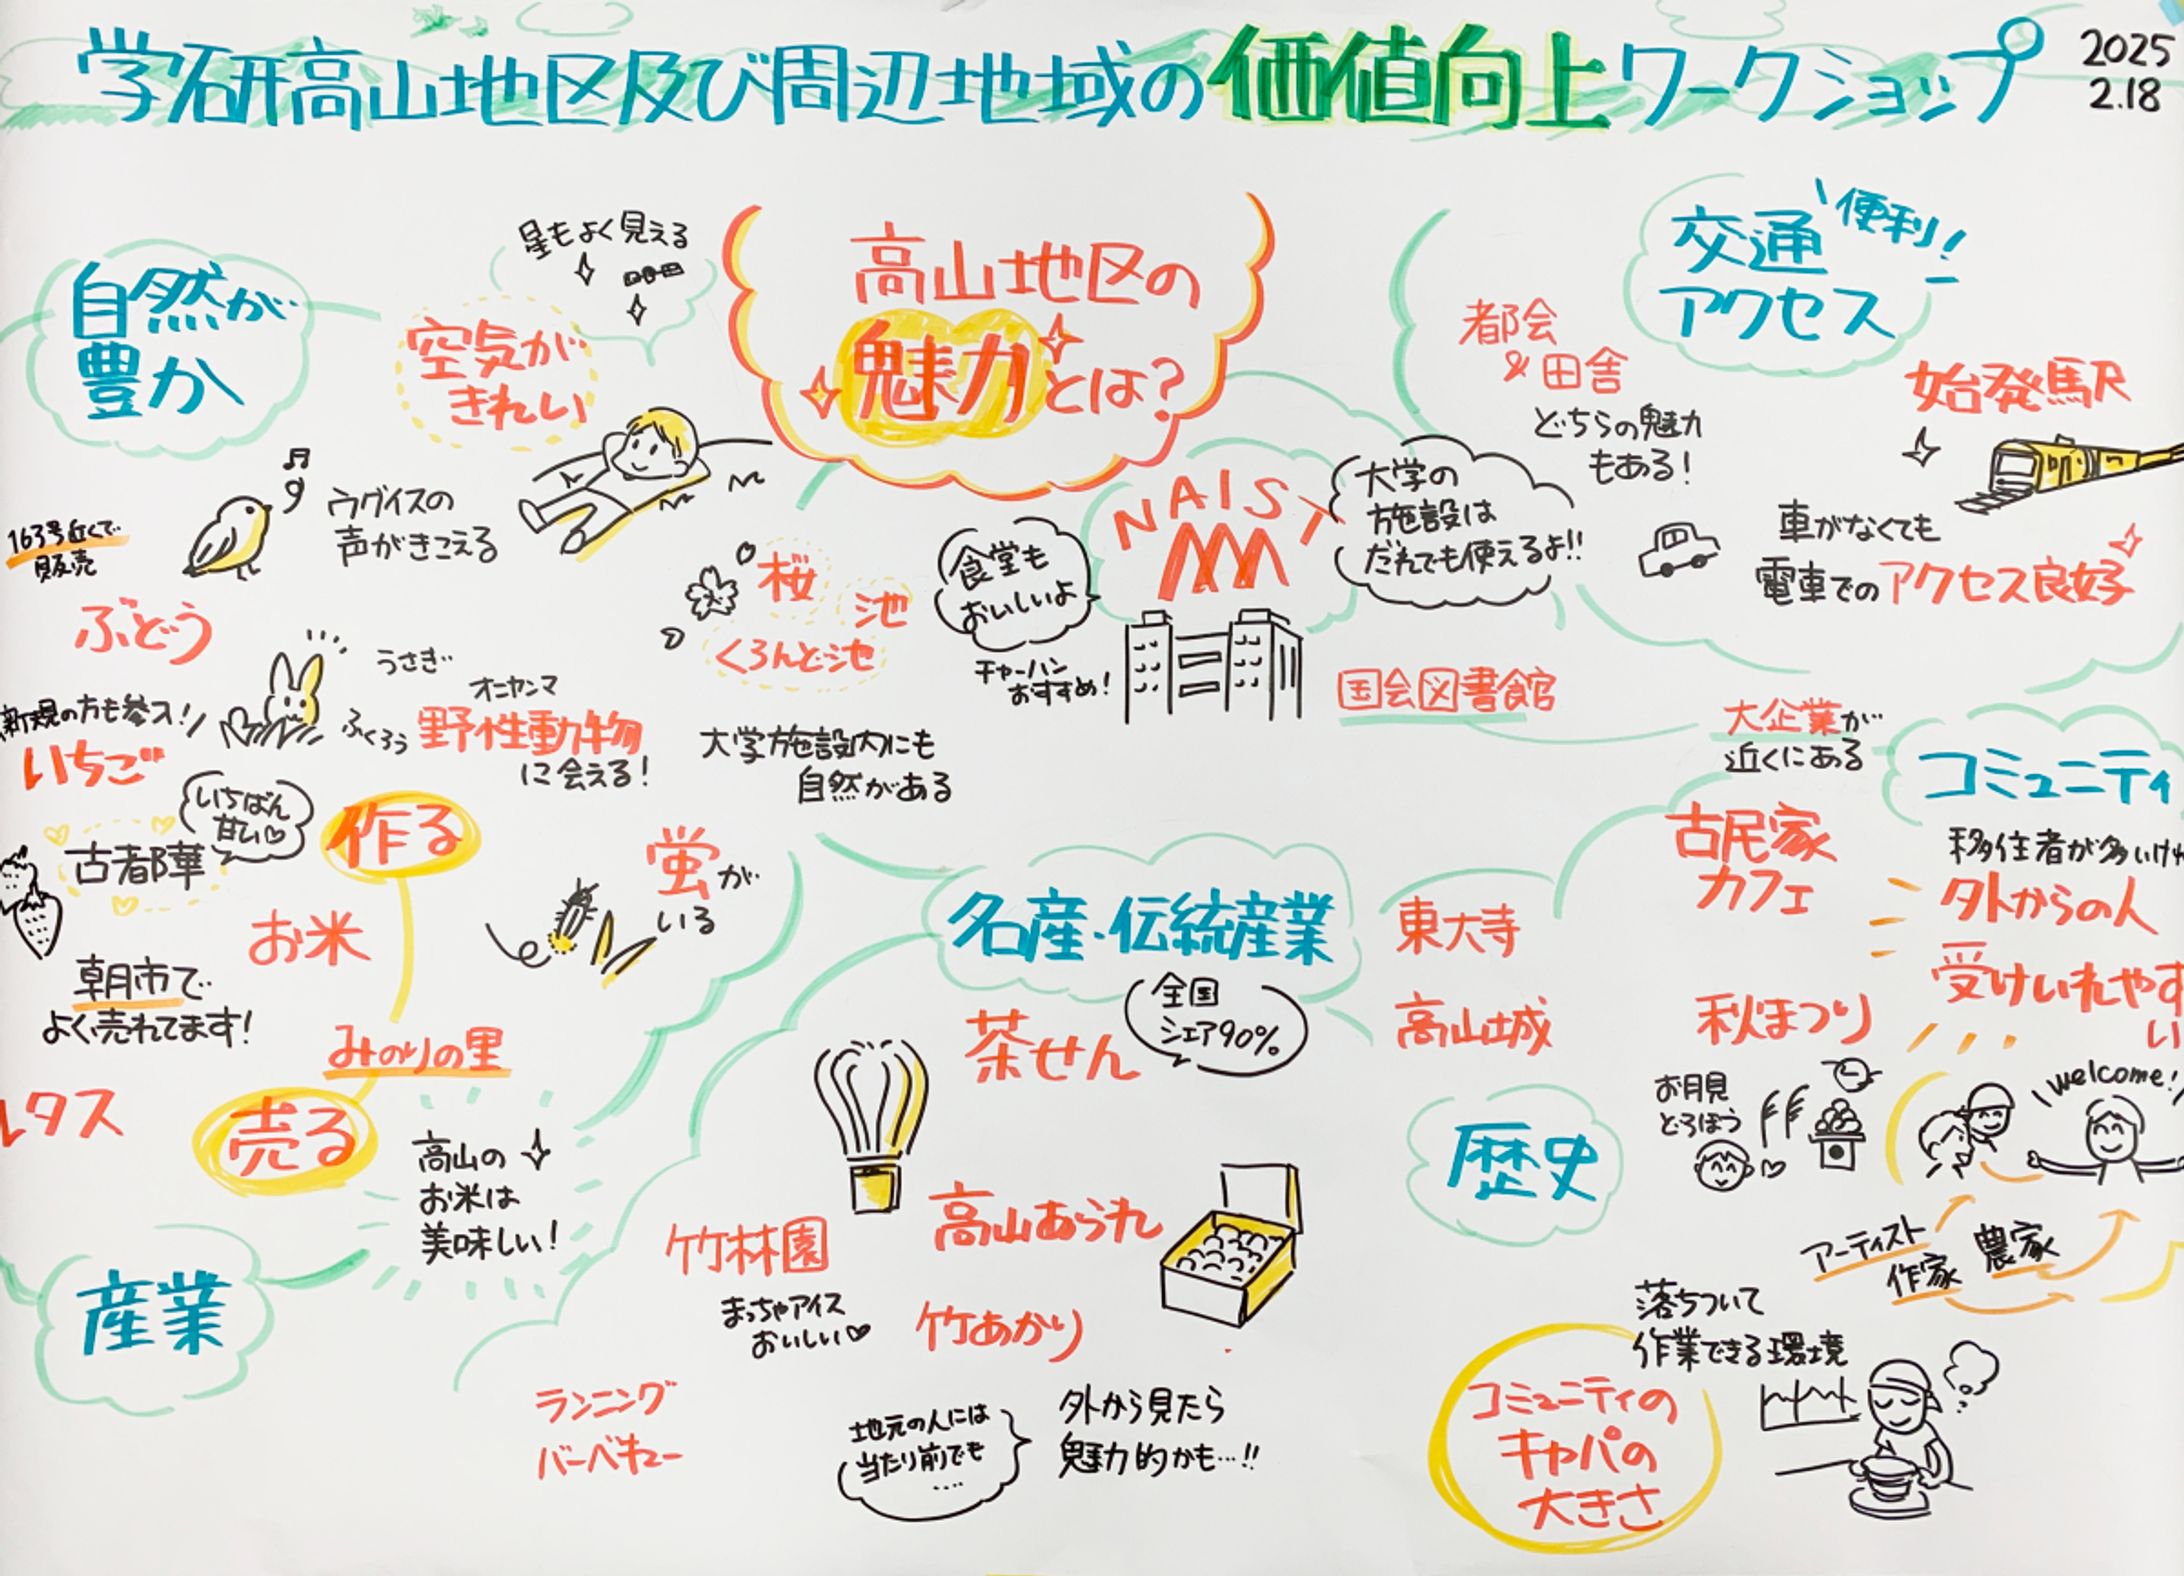 学研高山地区及び周辺地域の価値向上ワークショップ
2025
2.18
高山地区の
魅力とは?
自然が
豊か
空気が
きれい
星もよく見える
ウグイスの
声がきこえる
桜
池
くろんど池
うさぎ
オニヤンマ
ふくろう
野性動物
に会える!
大学施設内にも
自然がある
蛍が
いる
NAIST
食堂も
おいしいよ
チャーハン
おすすめ!
大学の
施設は
だれでも使えるよ!!
国会図書館
交通
アクセス
便利!
都会
&田舎
どちらの魅力
もある!
始発駅
車がなくても
電車でのアクセス良好
大企業が
近くにある
163号近くで
販売
ぶどう
新規の方も参入!
いちご
いちばん
甘い♡
古都華
作る
お米
朝市で
よく売れてます!
みのりの里
レタス
売る
高山の
お米は
美味しい!
産業
名産・伝統産業
茶せん
全国
シェア90%
竹林園
まっちゃアイス
おいしい♡
高山あられ
竹あかり
ランニング
バーベキュー
地元の人には
当たり前でも
....
外から見たら
魅力的かも…!!
東大寺
高山城
歴史
古民家
カフェ
秋まつり
お月見
どろぼう
コミュニティ
移住者が多いけれ
外からの人
受けいれやす
い
welcome!
アーティスト
作家
農家
落ちついて
作業できる環境
コミュニティの
キャパの
大きさ